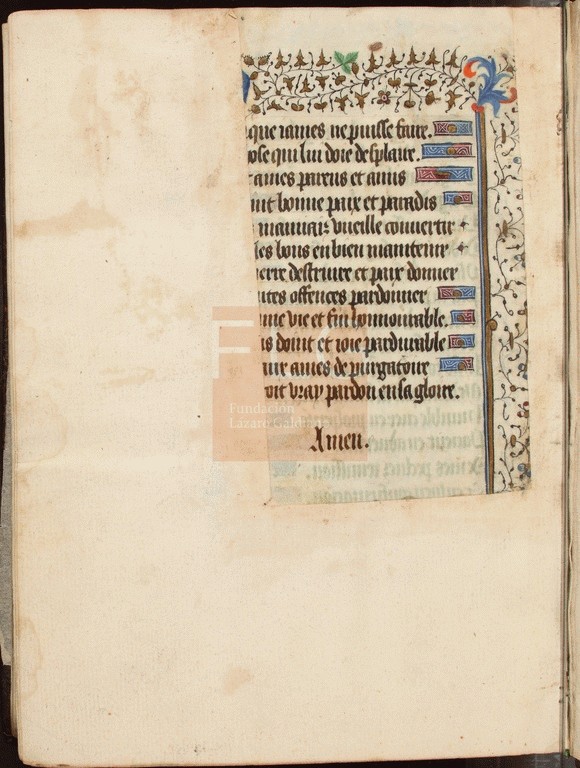 que iames ne puisse faire.
ose qui lui doie desplaire.
ames parens et amis
nit bonne paix et paradis
mauuaiz vueille conuertir
les bons en bien maintenir
erre destruire et paix donner
ites offences pardonner
ine vie et fin honnourable.
is doint et ioie pardurable
aux ames de purgatoire
oit vray pardon en sa gloire.
Amen.
FLG
Fundación
Lázaro Galdiano